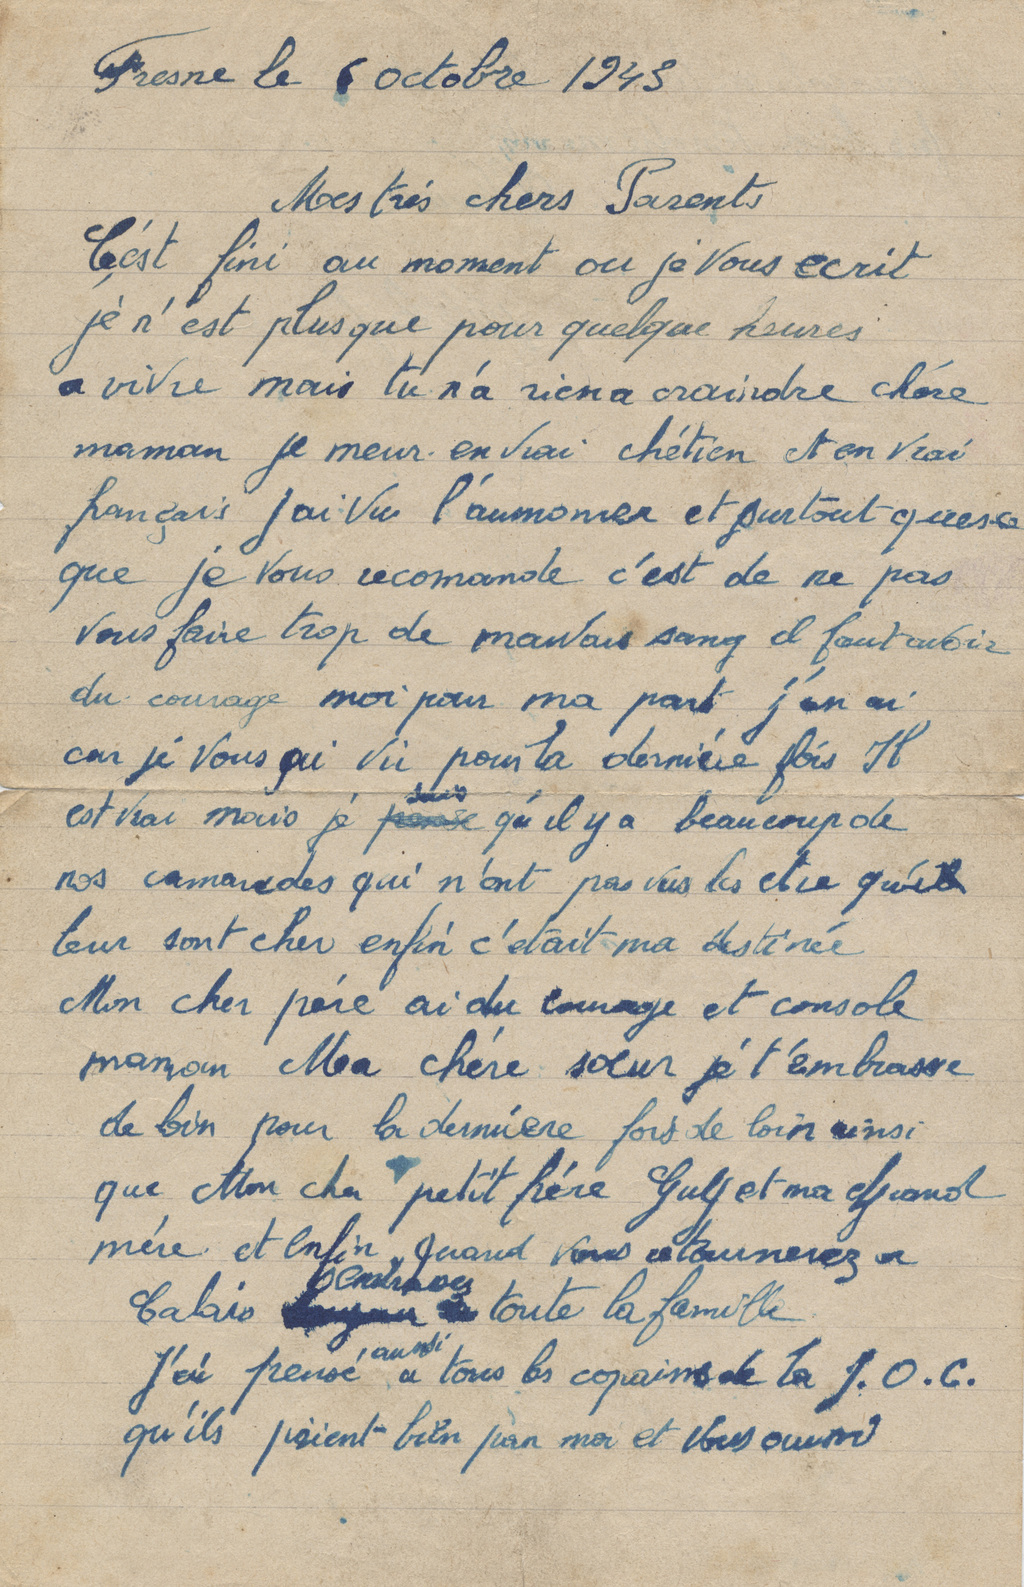 Fresne le 6 octobre 1943
Mes très chers Parents
C'ést fini au moment ou je vous ecrit
jé n'est plus que pour quelque heures
a vivre mais tu n'a rien a craindre chére
maman je meur en vrai chétien et en vrai
français j'ai vu l'aumonier et surtout quesce
que je vous recomande c'est de ne pas
vous faire trop de mauvais sang il faut avoir
du courage moi pour ma part j'en ai
car jé vous ai vu pour la dernière fois Il
est vrai mais jé sais qu'il y a beaucoup de
nos camarades qui n'ont pas vus les etre qu'il
leur sont cher enfin c'etait ma destinée
Mon cher pére ai du courage et console
maman Ma chére sœur jé t'embrasse
de loin pour la derniére fois de loin ainsi
que Mon cher petit frére Guly et ma Grand
mére et Enfin quand vous retournerez a
Calais embrassez toute la famille
J'ai pensé aussi a tous les copains de la J.O.C.
qu'ils prient bien pour moi et vous aussi